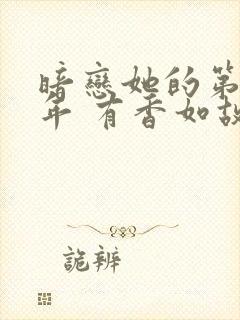 暗戀她的第
年 有香如故
詭辯